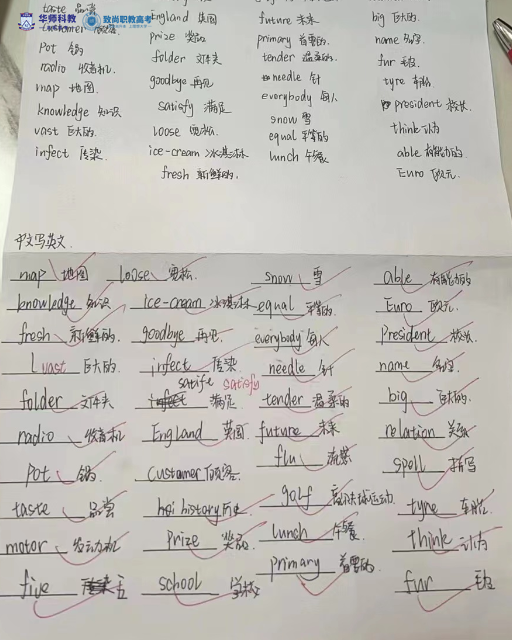 华师科教 致尚职教高考
taste 品尝 England 英国 future 未来 big 巨大的
customer 顾客 prize 奖品 primary 首要的 name 名字
pot 锅 folder 文件夹 tender 温柔的 fur 毛皮
radio 收音机 goodbye 再见 needle 针 tyre 车胎
map 地图 satisfy 满足 everybody 每人 president 校长
knowledge 知识 loose 宽松 snow 雪 think 认为
vast 巨大的 ice-cream 冰淇淋 equal 平等的 able 有能力的
infect 传染 fresh 新鲜的 lunch 午餐 Euro 欧元
中文写英文
map 地图 loose 宽松 snow 雪 able 有能力的
knowledge 知识 ice-cream 冰淇淋 equal 平等的 Euro 欧元
fresh 新鲜的 goodbye 再见 everybody 每人 President 校长
vast 巨大的 infect 传染 needle 针 name 名字
folder 文件夹 satife satisfy 满足 tender 温柔的 big 巨大的
radio 收音机 England 英国 future 未来 relation 关系
pot 锅 custamer 顾客 flu 流感 spell 拼写
taste 品尝 history 历史 golf 高尔夫球运动 tyre 车胎
motor 发动机 Prize 奖品 lunch 午餐 think 认为
five 五 school 学校 primary 首要的 fur 毛皮